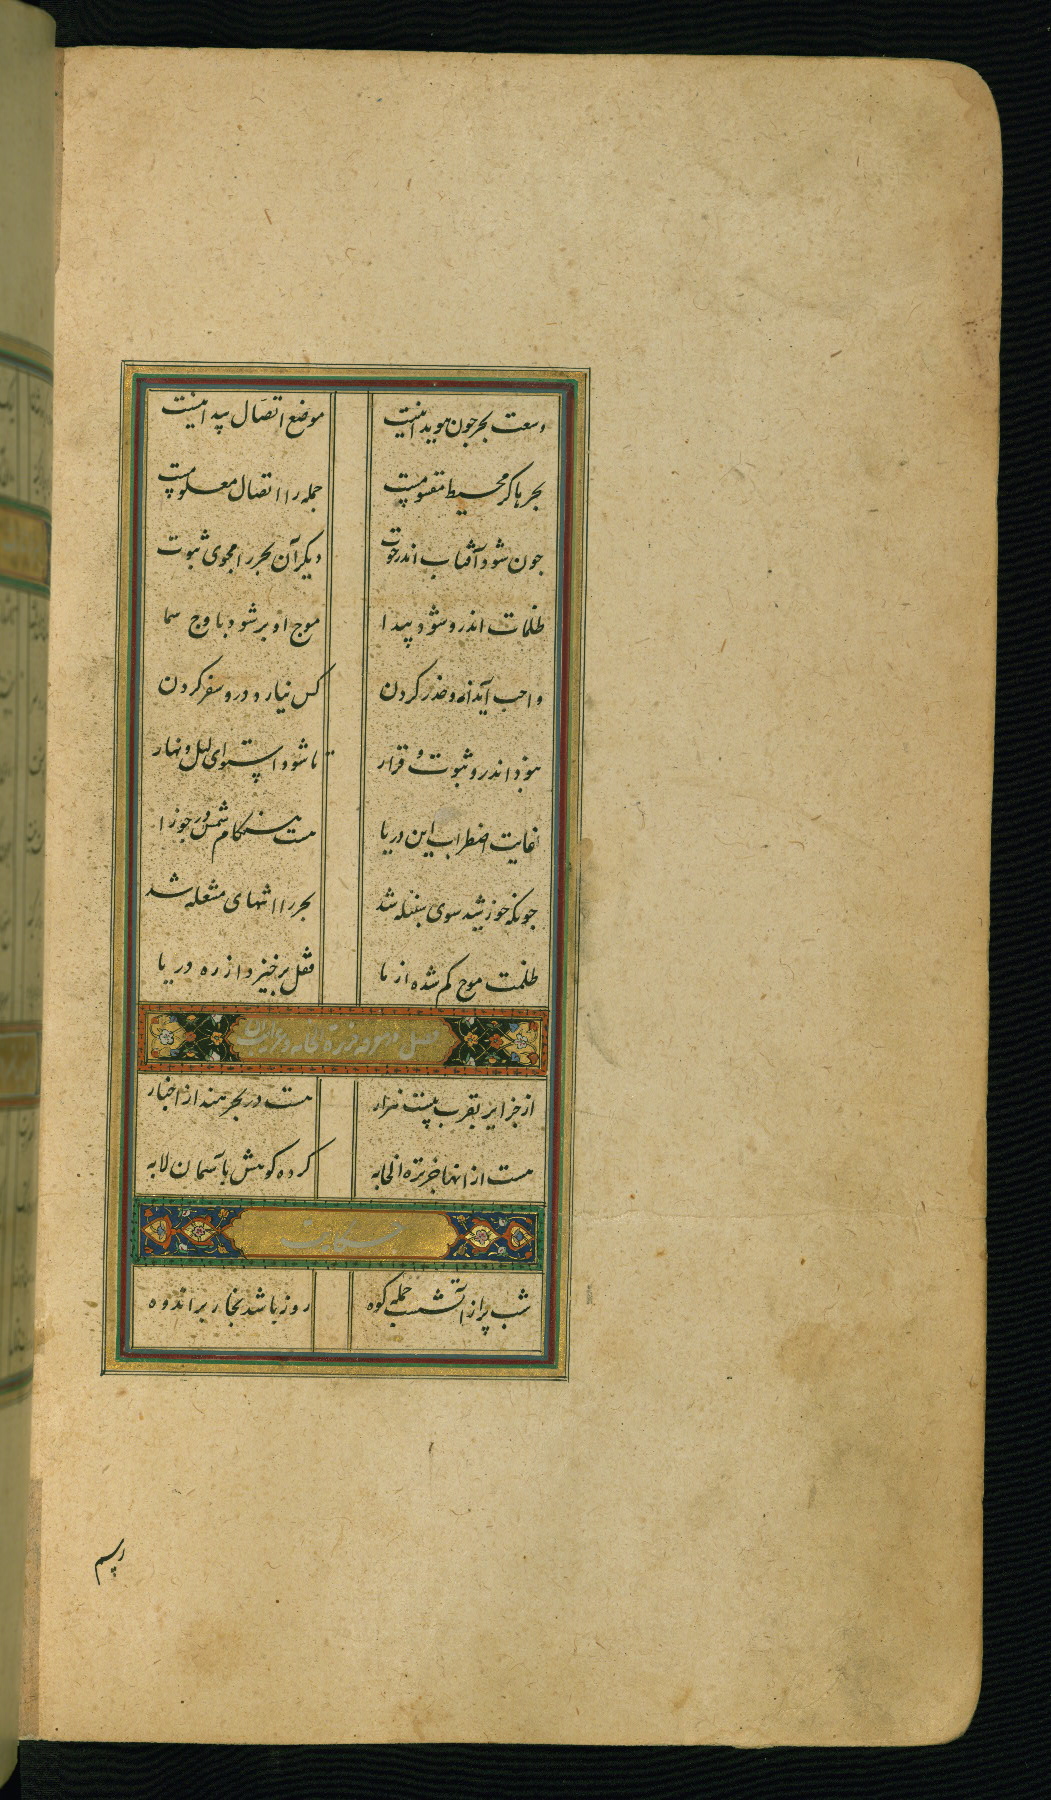 وسعت بحر چون هویدا نیست موضع اتصال پیدا نیست
بحرها کز محیط مقسومست جمله را اتصال معلومست
چون شود آفتاب اندر حوت دیگر آن بحر را مجوی ثبوت
ظلمات اندرو شود پیدا موج او بر شود باوج سما
واجب آید ازو حذر کردن کس نیارد درو سفر کردن
نبود اندرو ثبوت و قرار تا شود استوای لیل و نهار
غایت اضطراب این دریا هست هنگام شمس در جوزا
چونکه خورشید سوی سنبله شد بحر را انتهای مشعله شد
ظلمت موج کم شده از ما قفل برخیزد از ره دریا
فصل در جزیرة
از جزایر بقرب بیست هزار هست در بحر هند از اخبار
هست از انها جزیره الجابه کرده کوهش بآسمان لابه
حکایت
شب پر از آتشست جمله کوه روز باشد بخار پر اندوه